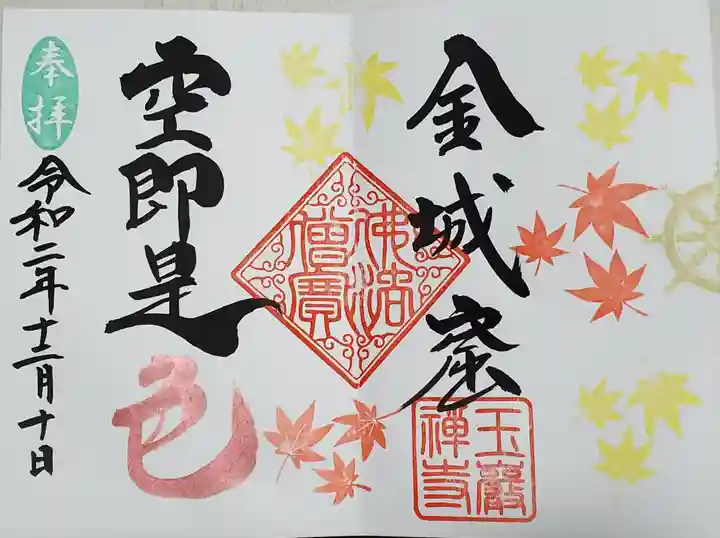 金城窟
玉巖
禅寺
佛法
僧寳
空即是色
奉拝
令和二年十二月十日